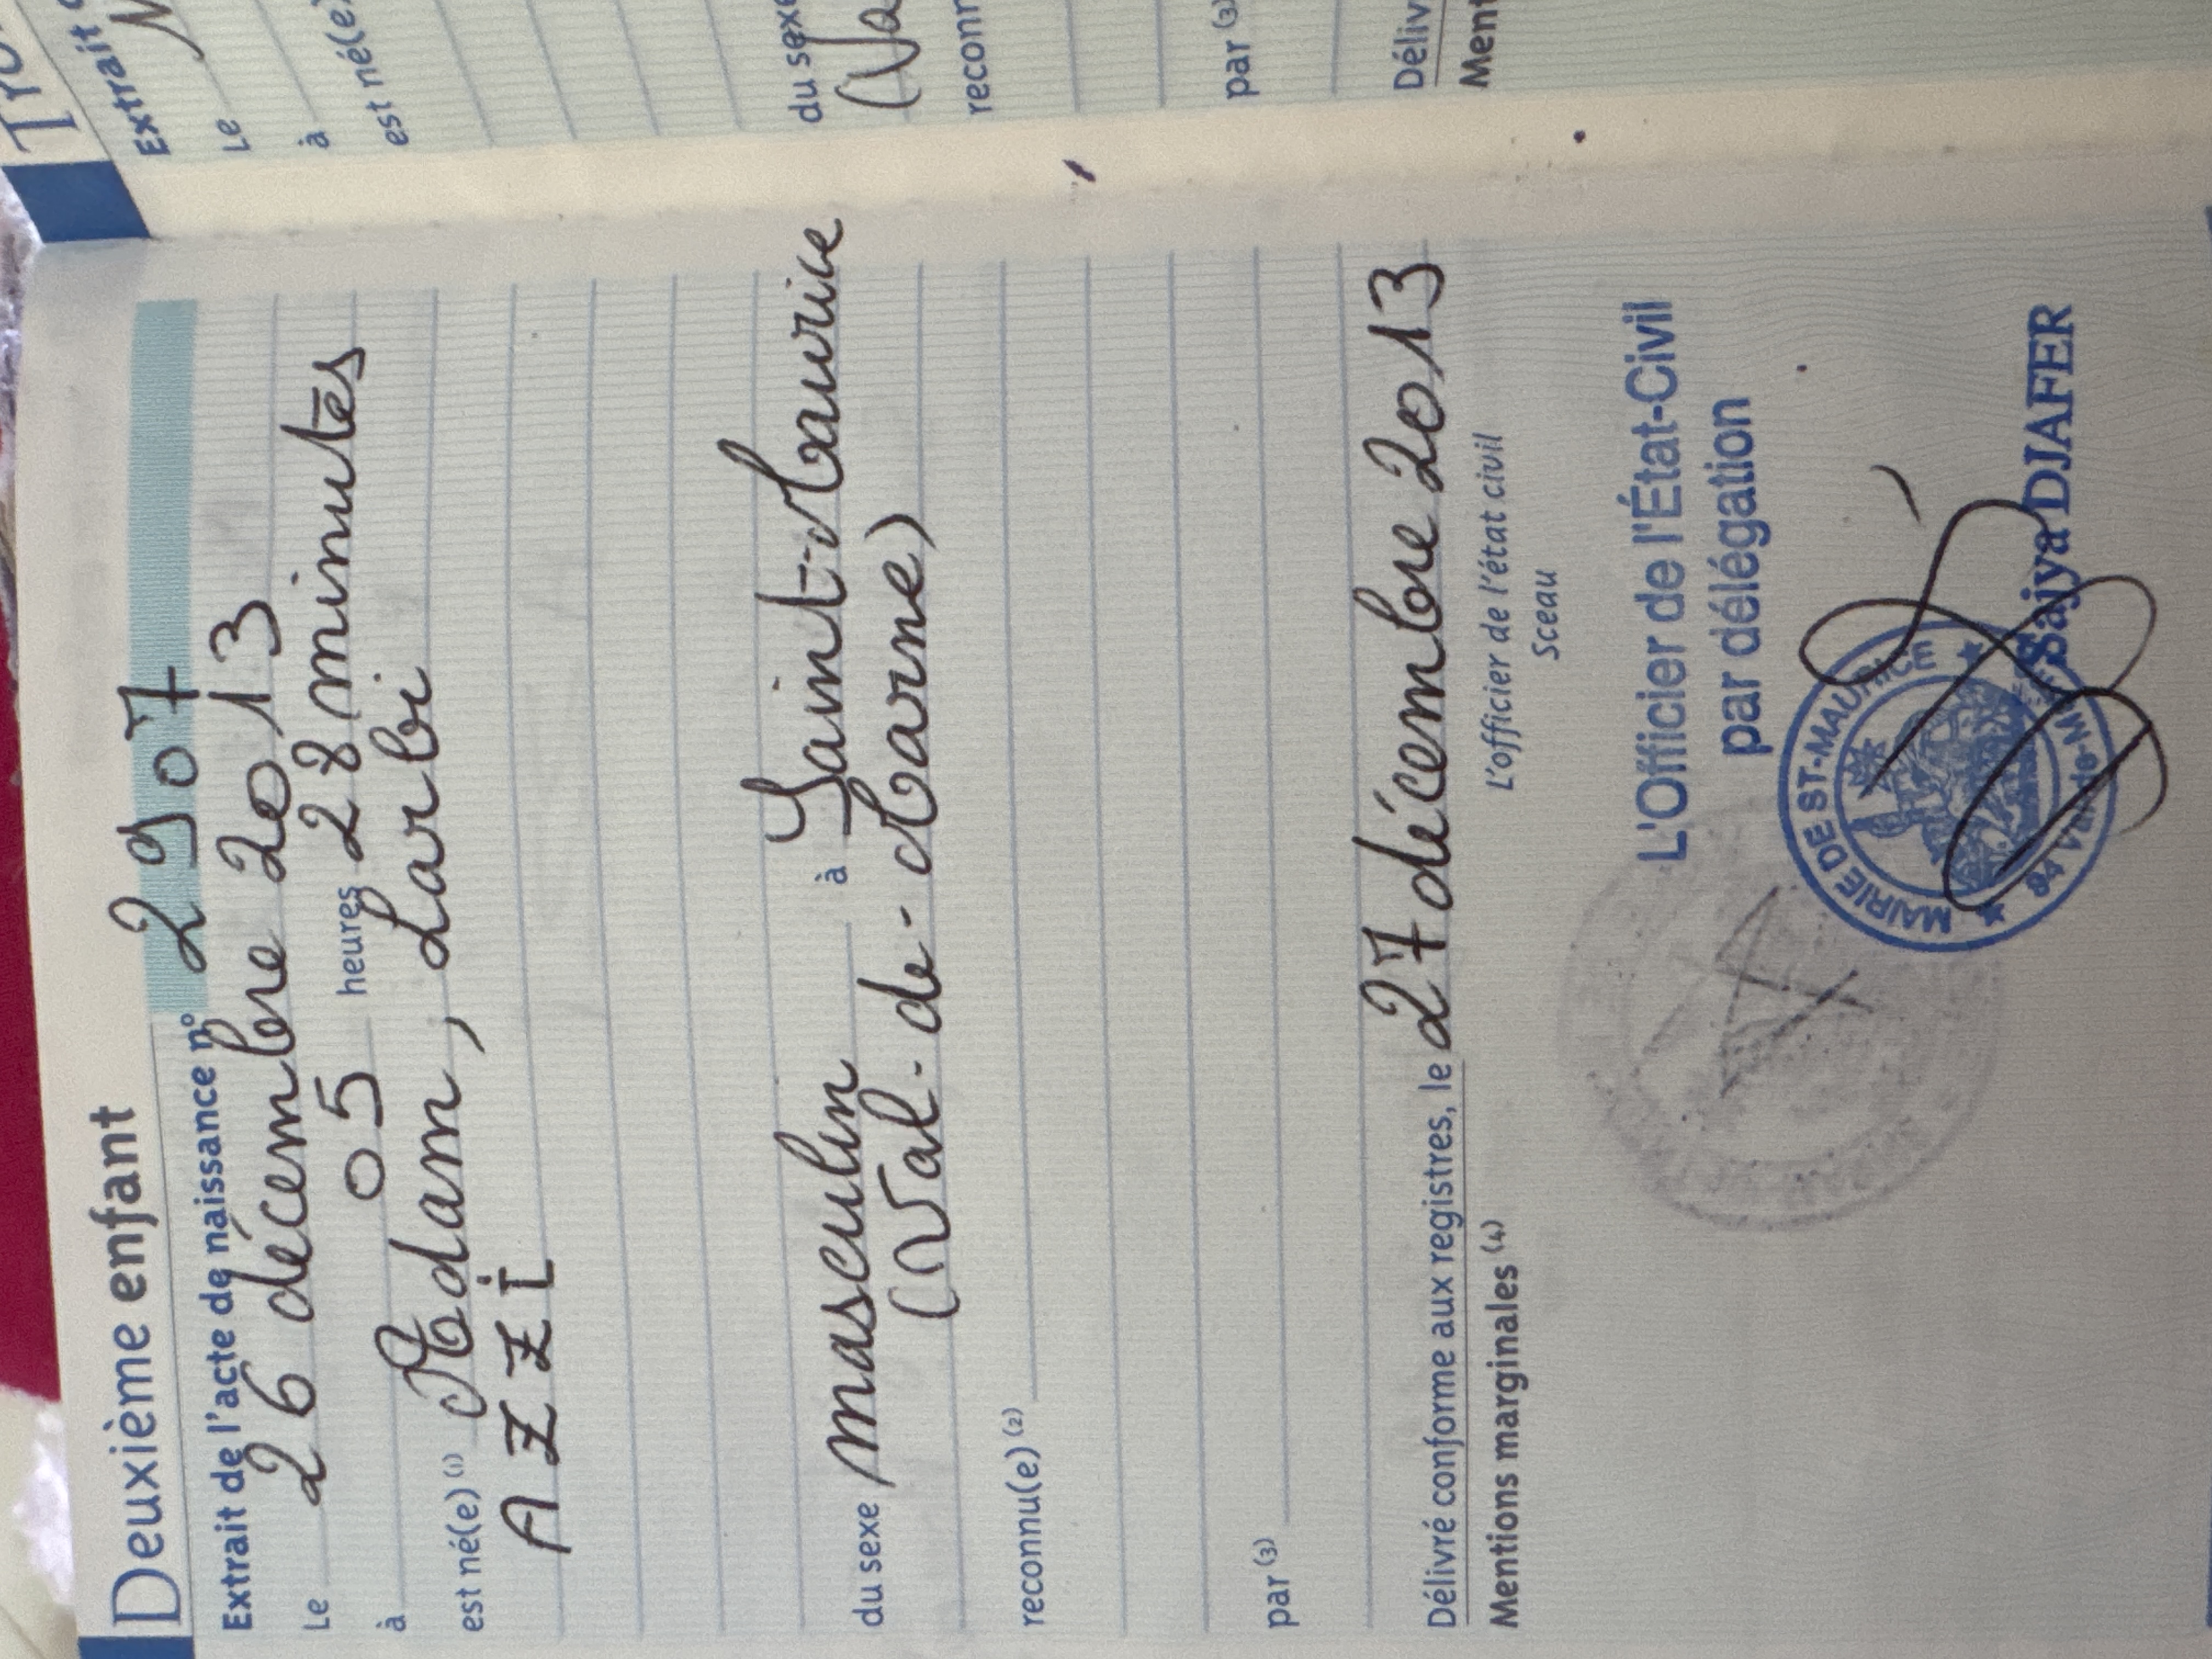 Deuxième enfant
Extrait de l'acte de naissance n° 2907
Le 26 décembre 2013
à 05 heures 28 minutes
est né(e) (1) Adam, Larbi
AZZI
du sexe masculin à Saint-Maurice
(Val-de-Marne)
reconnu(e) (2)
par (3)
Délivré conforme aux registres, le 27 décembre 2013
Mentions marginales (4)
L'officier de l'état civil
Sceau
L'Officier de l'État-Civil
par délégation
MAIRIE DE ST-MAURICE
94 Val-de-Marne
Sajya DJAFER
Extrait
Le
à
est né(e)
du sexe
reconn
par (3)
Déliv
Ment